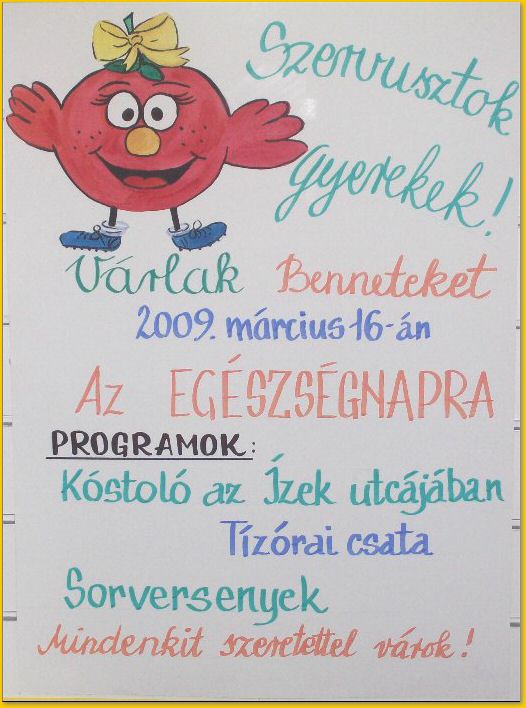 Szervusztok
gyerekek!
Várlak Benneteket
2009. március 16-án
Az EGÉSZSÉGNAPRA
PROGRAMOK:
Kóstoló az Ízek utcájában
Tízórai csata
Sorversenyek
Mindenkit szeretettel várok!